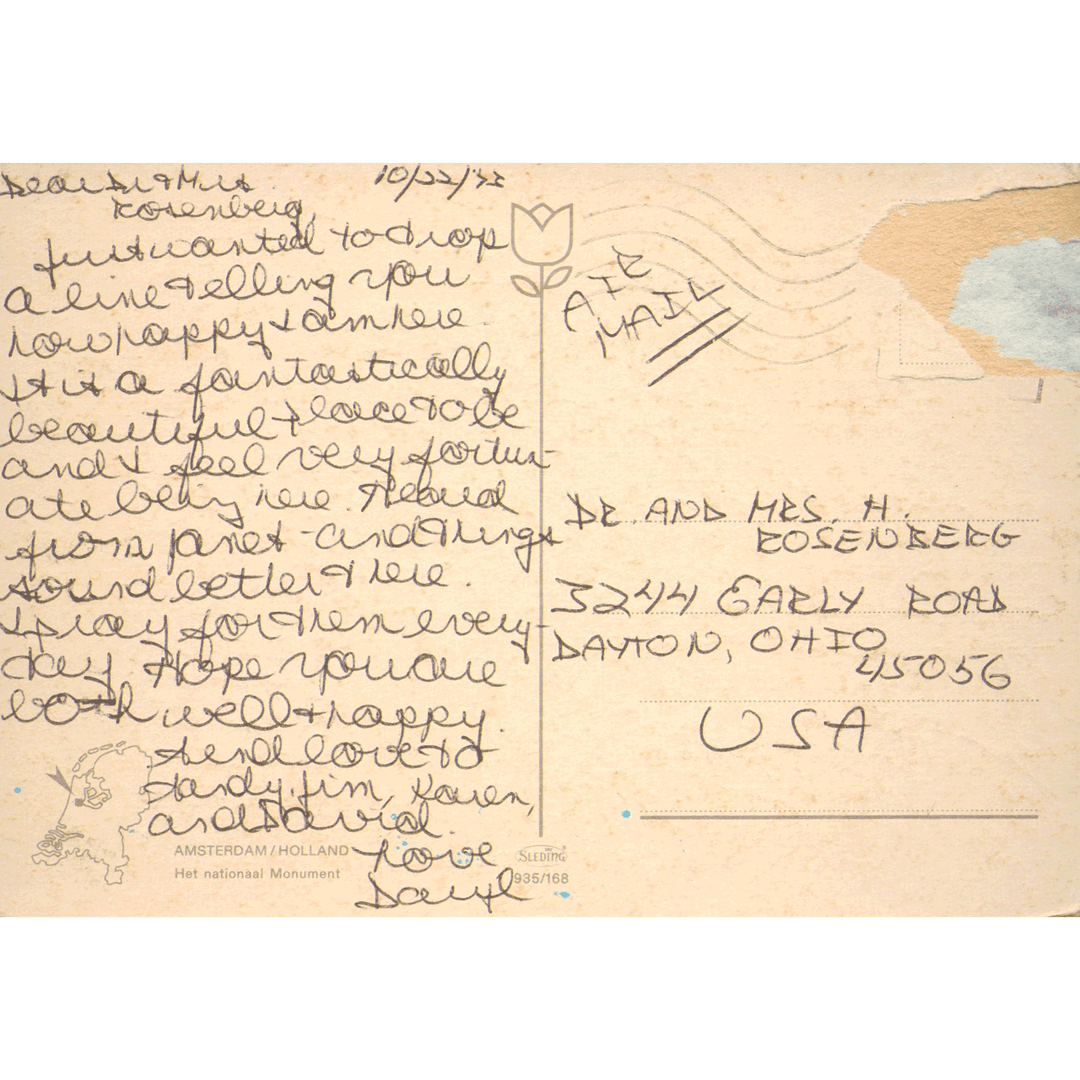 Dear Dr + Mrs. 10/22/73
Rosenberg,
Just wanted to drop
a line telling you
how happy I am here.
It is a fantastically
beautiful place to be
and I feel very fortun-
ate being here. Heard
from Janet - and things
sound better there.
I pray for them every-
day. Hope you are
both well + happy.
Send love to
Sandy, Jim, Karen,
and David.
Love
Daryl
AIR
MAIL
DR. AND MRS. H.
ROSENBERG
3244 EARLY ROAD
DAYTON, OHIO
45056
USA
AMSTERDAM / HOLLAND
Het nationaal Monument
SLEDING
935/168